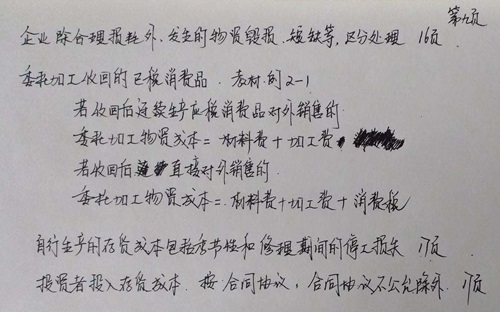 第九页
企业除合理损耗外、发生的物资毁损、短缺等,区分处理 16页
委托加工收回的已税消费品. 教材.例2-1
若收回后连续生产应税消费品对外销售的.
委托加工物资成本=材料费+加工费
若收回后直接对外销售的.
委托加工物资成本=.材料费+加工费+消费税
自行生产的存货成本包括季节性和修理期间的停工损失 17页
投资者投入存货成本. 按合同协议,合同协议不公允除外. 17页